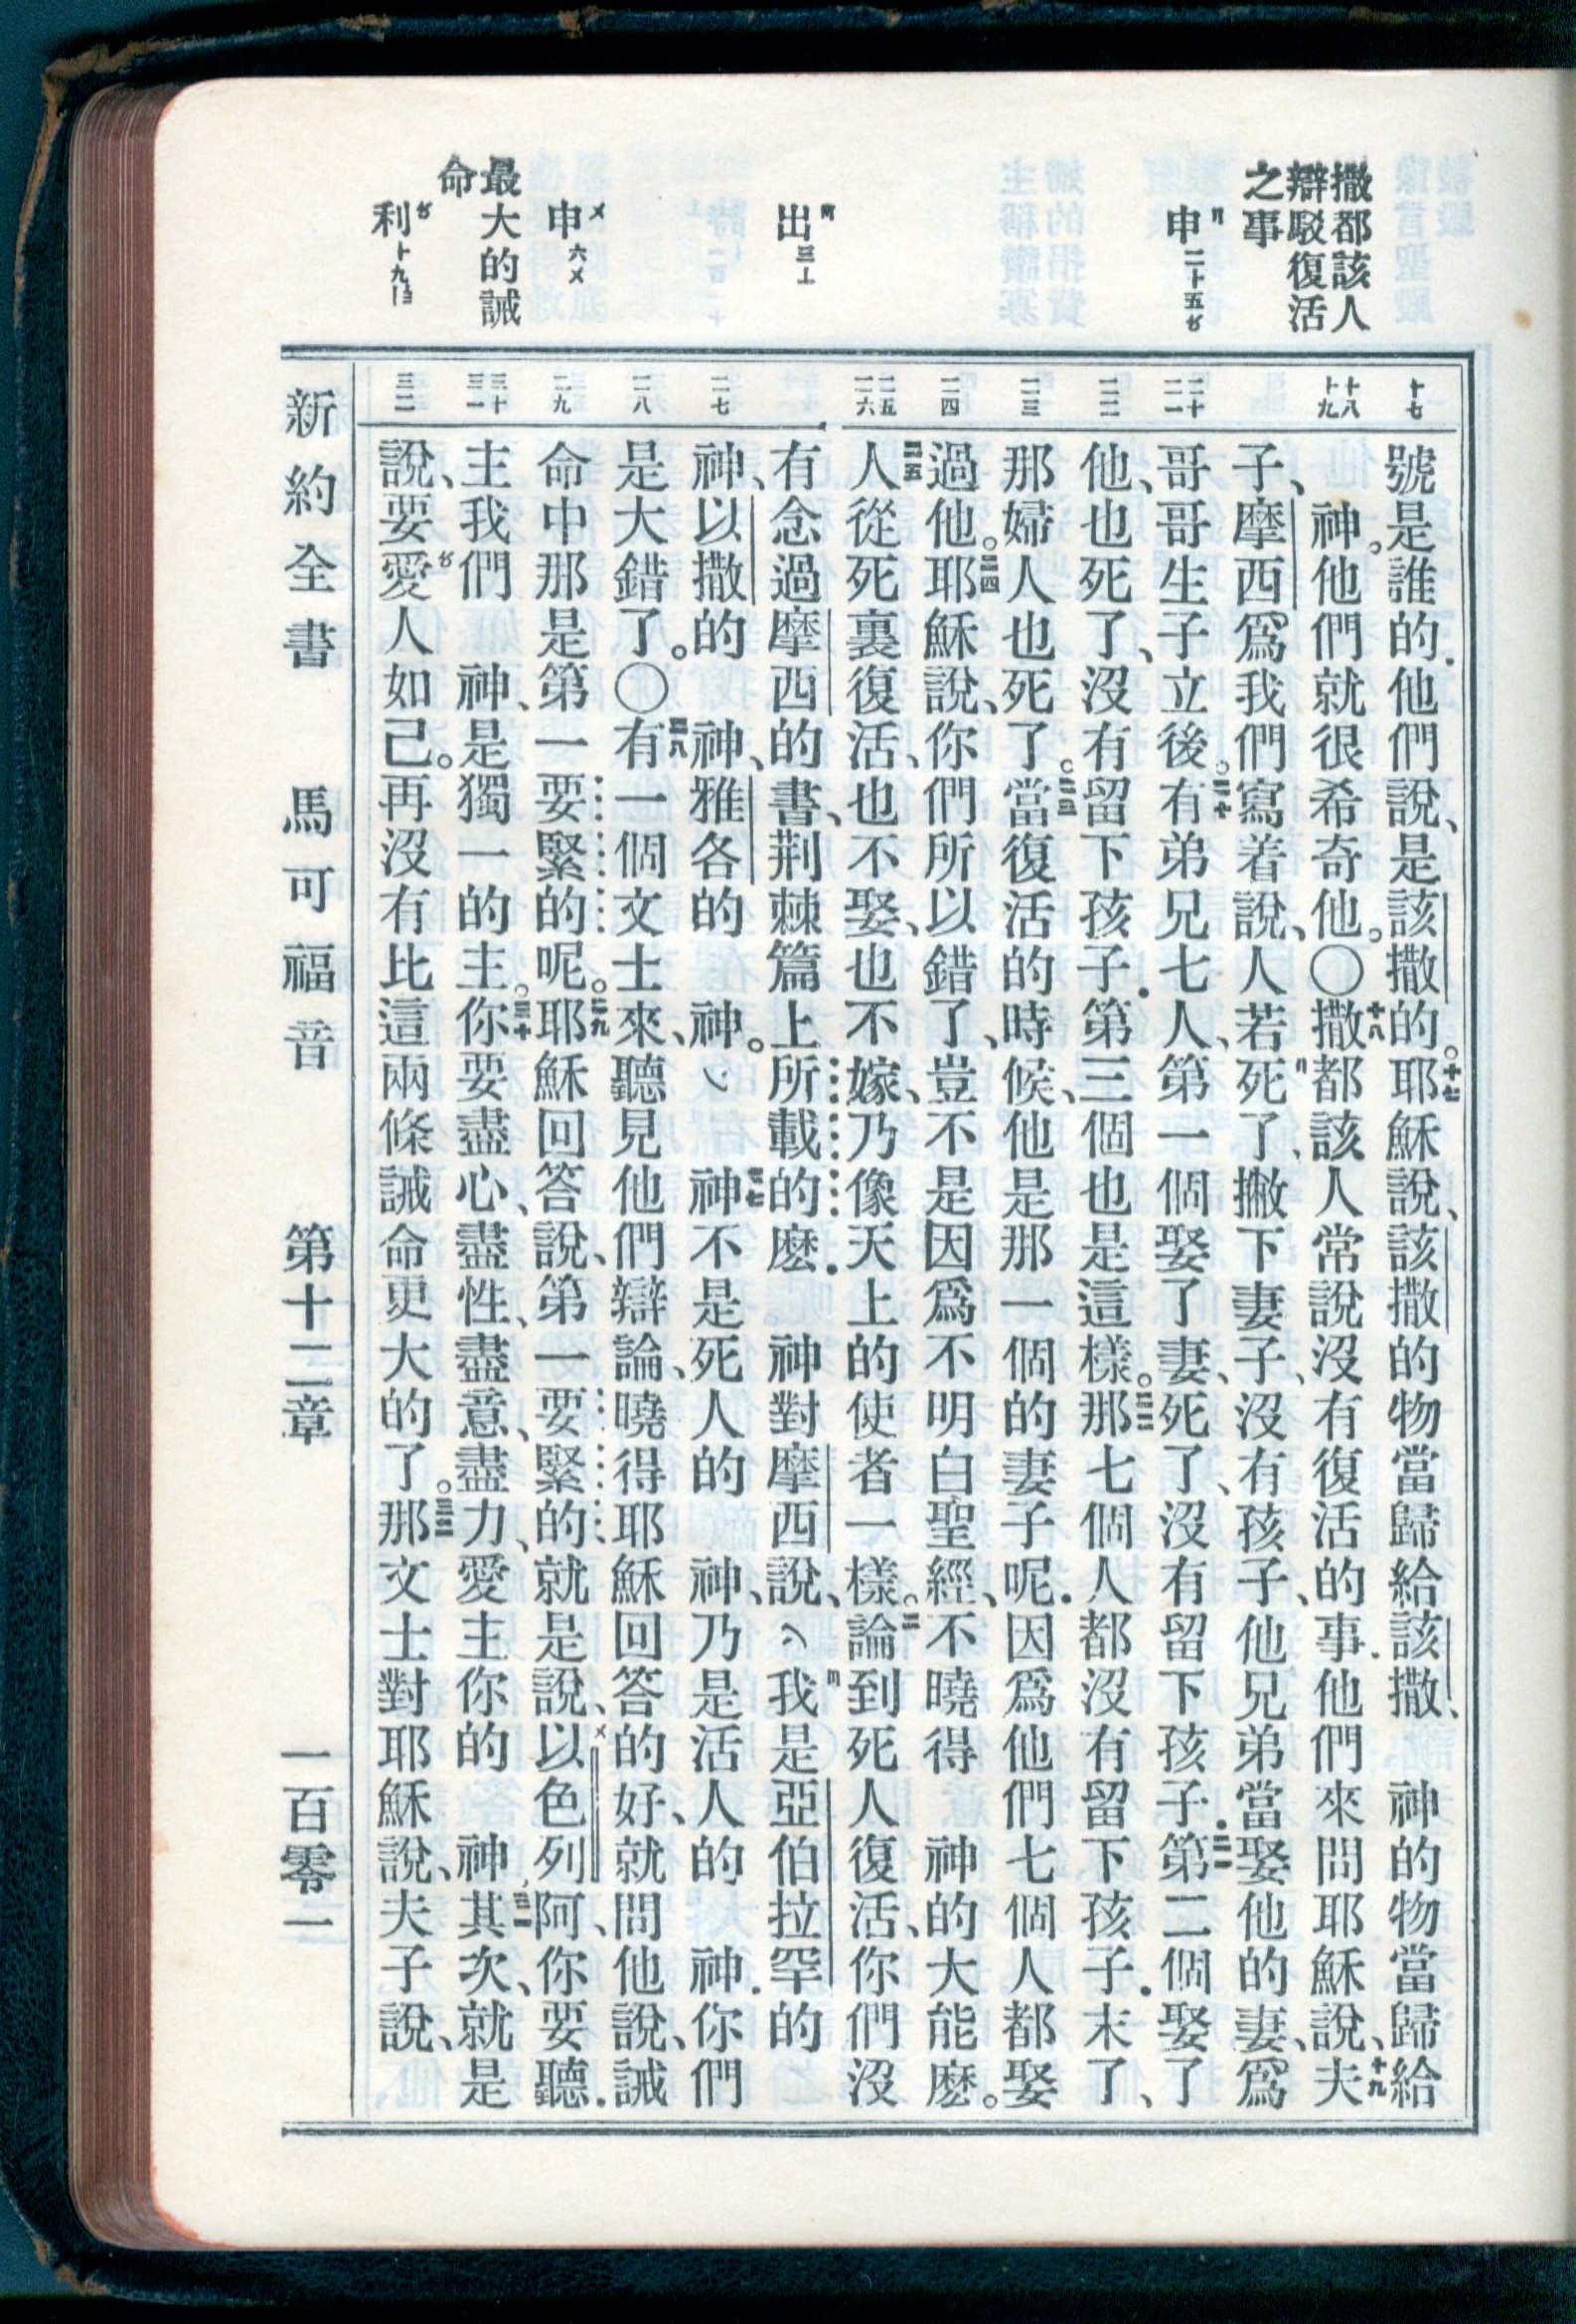 撒都該人
辯駁復活
之事
申二十五
出三
申六
最大的誡
命
利十九
十七
十八
十九
二十
二一
二二
二三
二四
二五
二六
二七
二八
二九
三十
三一
三二
號是誰的.他們說、是該撒的。十七耶穌說、該撒的物當歸給該撒、 神的物當歸給
神。他們就很希奇他。〇十八撒都該人常說沒有復活的事.他們來問耶穌說、十九夫
子、摩西爲我們寫着說、人若死了、撇下妻子、沒有孩子、他兄弟當娶他的妻、爲
哥哥生子立後。二十有弟兄七人、第一個娶了妻、死了、沒有留下孩子.二一第二個娶了
他、也死了、沒有留下孩子.第三個也是這樣。二二那七個人都沒有留下孩子.末了、
那婦人也死了。二三當復活的時候、他是那一個的妻子呢.因爲他們七個人都娶
過他。二四耶穌說、你們所以錯了、豈不是因爲不明白聖經、不曉得 神的大能麽。
二五人從死裏復活、也不娶、也不嫁、乃像天上的使者一樣。二六論到死人復活、你們沒
有念過摩西的書、荆棘篇上所載的麽. 神對摩西說、我是亞伯拉罕的
神、以撒的 神、雅各的 神。二七 神不是死人的 神、乃是活人的 神.你們
是大錯了。〇二八有一個文士來、聽見他們辯論、曉得耶穌回答的好、就問他說、誡
命中那是第一要緊的呢。二九耶穌回答說、第一要緊的就是說、以色列阿、你要聽.
主我們 神、是獨一的主。三十你要盡心、盡性、盡意、盡力、愛主你的 神.三一其次、就是
說、要愛人如己。再沒有比這兩條誡命更大的了。三二那文士對耶穌說、夫子說、
新約全書 馬可福音 第十二章 一百零一